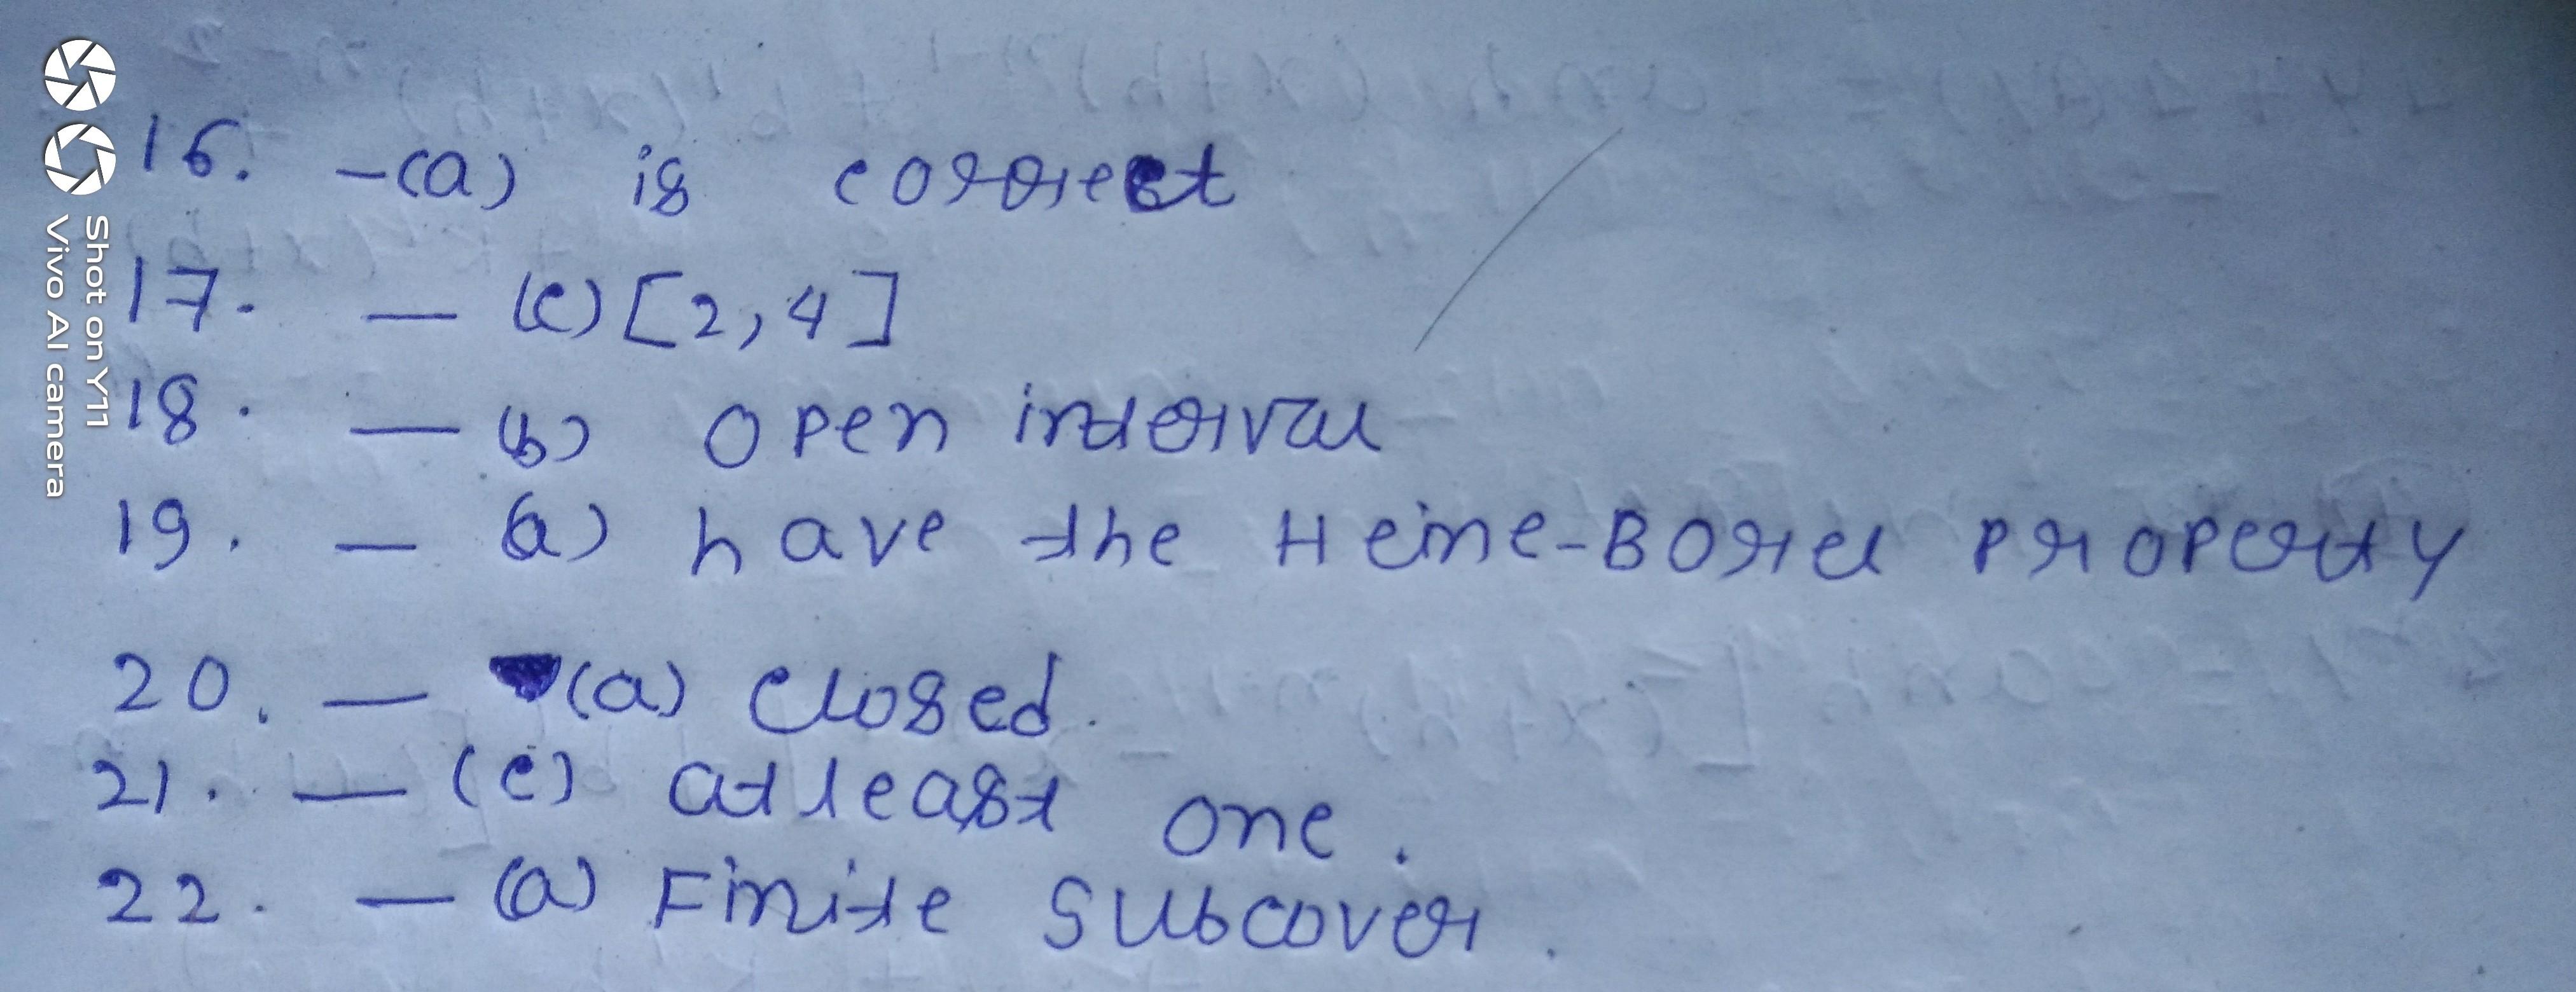 16. -(a) is correct
17. — (c) [2,4]
18. — (b) open interval
19. — (a) have the Heine-Borel property
20. — (a) closed.
21. — (c) atleast one.
22. — (a) Finite subcover.
Shot on Y11
Vivo AI camera